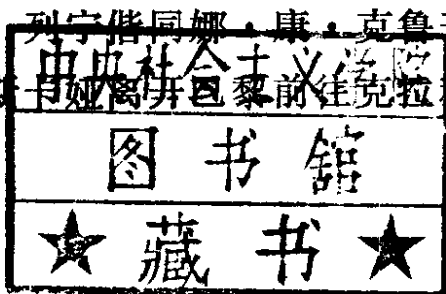 列宁偕同娜·康·克鲁
中央社会主义学院
卡娅离开巴黎前往克拉
图书舘
★藏书★